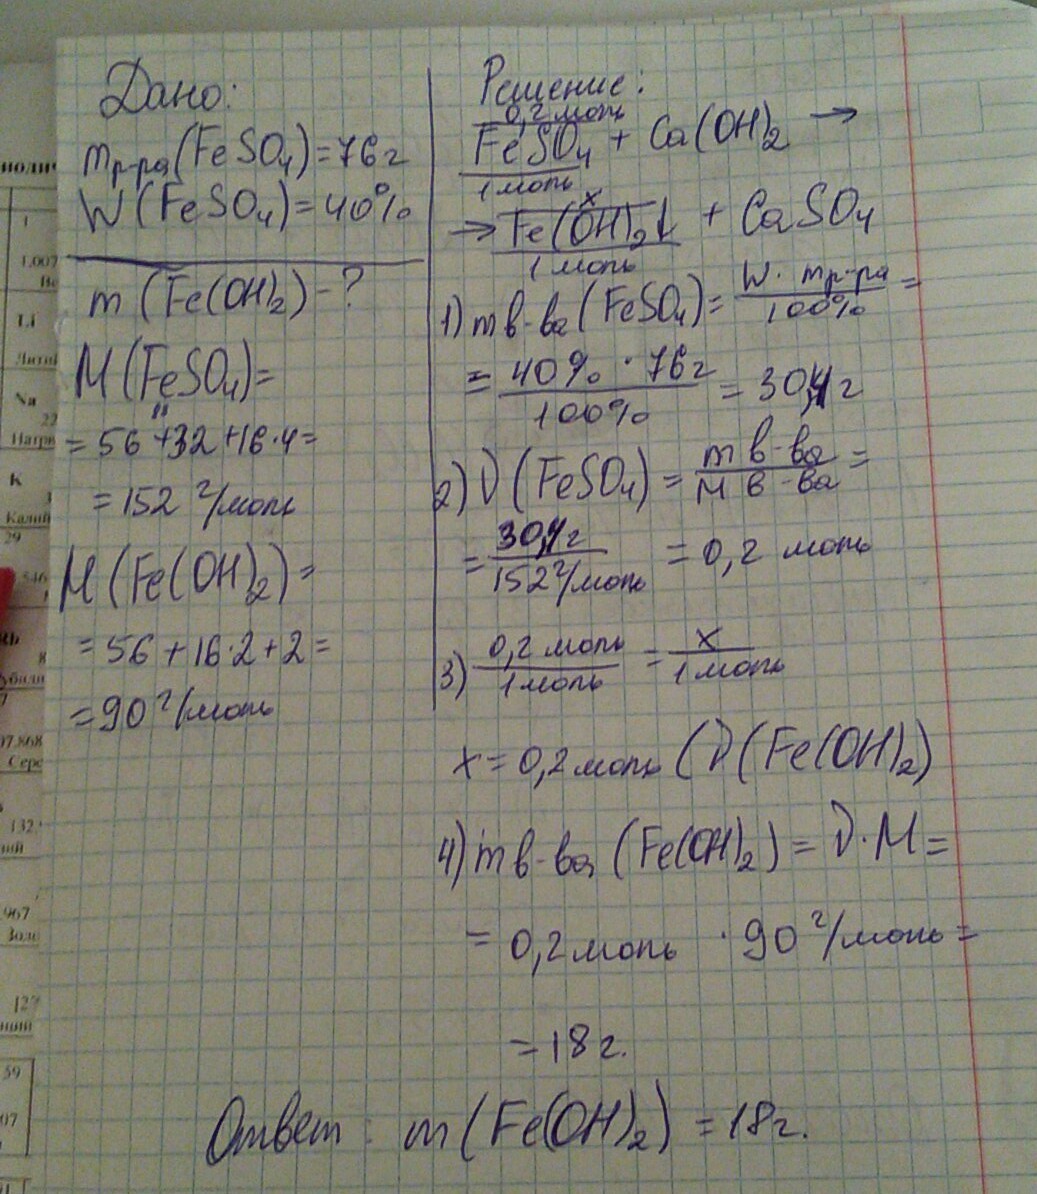 Дано:
mр-ра(FeSO₄)=76г
W(FeSO₄)=40%
m(Fe(OH)₂)-?
M(FeSO₄)=
=56+32+16·4=
=152 г/моль
M(Fe(OH)₂)=
=56+16·2+2=
=90 г/моль
Решение:
0,2 моль
FeSO₄ + Ca(OH)₂ →
1 моль
x
→ Fe(OH)₂↓ + CaSO₄
1 моль
1) m в-ва(FeSO₄)= W·mр-ра/100% =
= 40%·76г/100% = 30,4г
2) ν(FeSO₄)= m в-ва/M в-ва =
= 30,4г/152г/моль = 0,2 моль
3) 0,2 моль/1 моль = x/1 моль
x=0,2 моль (ν(Fe(OH)₂)
4) m в-ва (Fe(OH)₂)=ν·M=
= 0,2 моль · 90 г/моль =
=18г.
Ответ: m(Fe(OH)₂)=18г.
1,007
Li
Na
22
K
29
546
97.868
132,
967
Золо
127
59
07